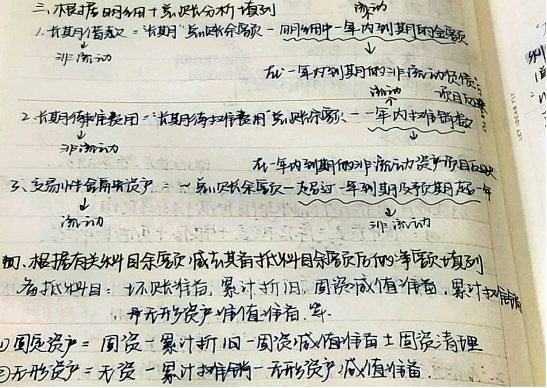 三、根据明细+总账分析填列
流动
1.长期借款="长期"总账余额-明细中一年内到期的金额
↓
非流动
在一年内到期的非流动负债
项目反映
流动
2.长期待摊费用="长期待摊费用"总账余额-一年内摊销数
↓
非流动
在一年内到期的非流动资产项目反映
3、交易性金融资产=~总账余额-超过一年到期及预期持有超一年
↓
流动
非流动
四、根据有关科目余额减去其备抵科目余额后的净额填列
备抵科目:坏账准备,累计折旧,固资减值准备,累计摊销
无形资产减值准备.等.
①固定资产=固资-累计折旧-固资减值准备±固资清理
②无形资产=无资-累计摊销-无形资产减值准备